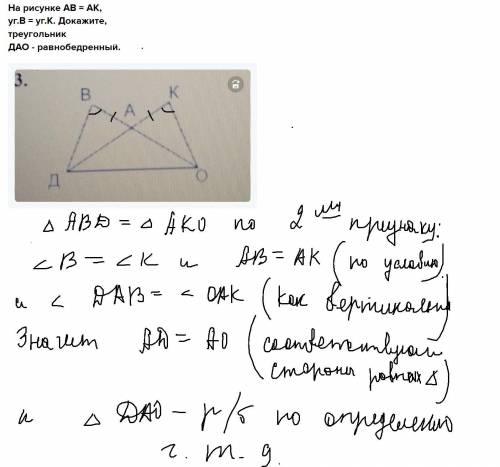 На рисунке АВ = АК,
уг.В = уг.К. Докажите,
треугольник
ДАО - равнобедренный.
3.
В А К
Д О
△ АВД = △ АКО по 2му признаку:
∠B = ∠K и АВ = АК (по условию)
и ∠ DAB = ∠ OAK (как вертикальн)
Значит АД = АО (соответствующ
стороны равных △)
и △ DAO - р/б по определению
ч. т. д.